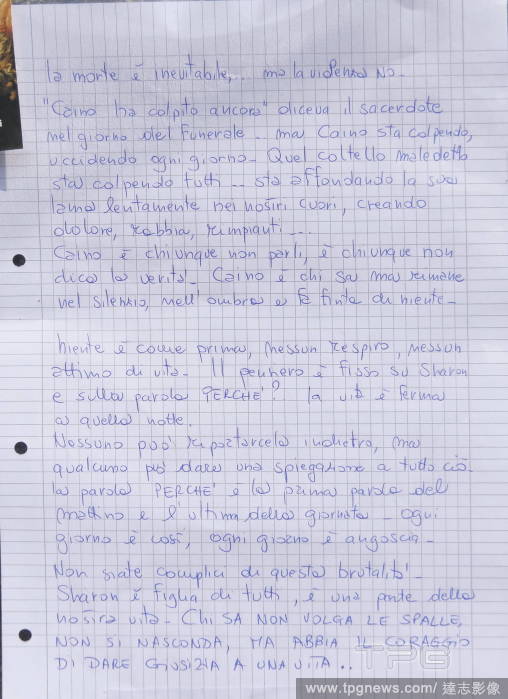 la morte è inevitabile,... ma la violenza no.
"Caino ha colpito ancora" diceva il sacerdote
nel giorno del funerale.. ma Caino sta colpendo,
uccidendo ogni giorno. Quel coltello maledetto
sta colpendo tutti... sta affondando la sua
lama lentamente nei nostri cuori, creando
dolore, rabbia, rimpianti...
Caino è chiunque non parli, è chiunque non
dica la verità. Caino è chi sa ma rimane
nel silenzio, nell'ombra e fa finta di niente.
niente è come prima, nessun respiro, nessun
attimo di vita. Il pensiero è fisso su Sharon
e sulla parola PERCHE'? la vita è ferma
a quella notte.
Nessuno può riportarcela indietro, ma
qualcuno può dare una spiegazione a tutto ciò.
la parola PERCHE' è la prima parola del
mattino e l'ultima della giornata. ogni
giorno è così, ogni giorno è angoscia.
Non siate complici di questa brutalità.
Sharon è figlia di tutti, è una parte della
nostra vita. Chi SA NON VOLGA LE SPALLE,
NON SI NASCONDA, MA ABBIA IL CORAGGIO
DI DARE GIUSIZIA A UNA VITA..
TPG
www.tpgnews.com/達志影像